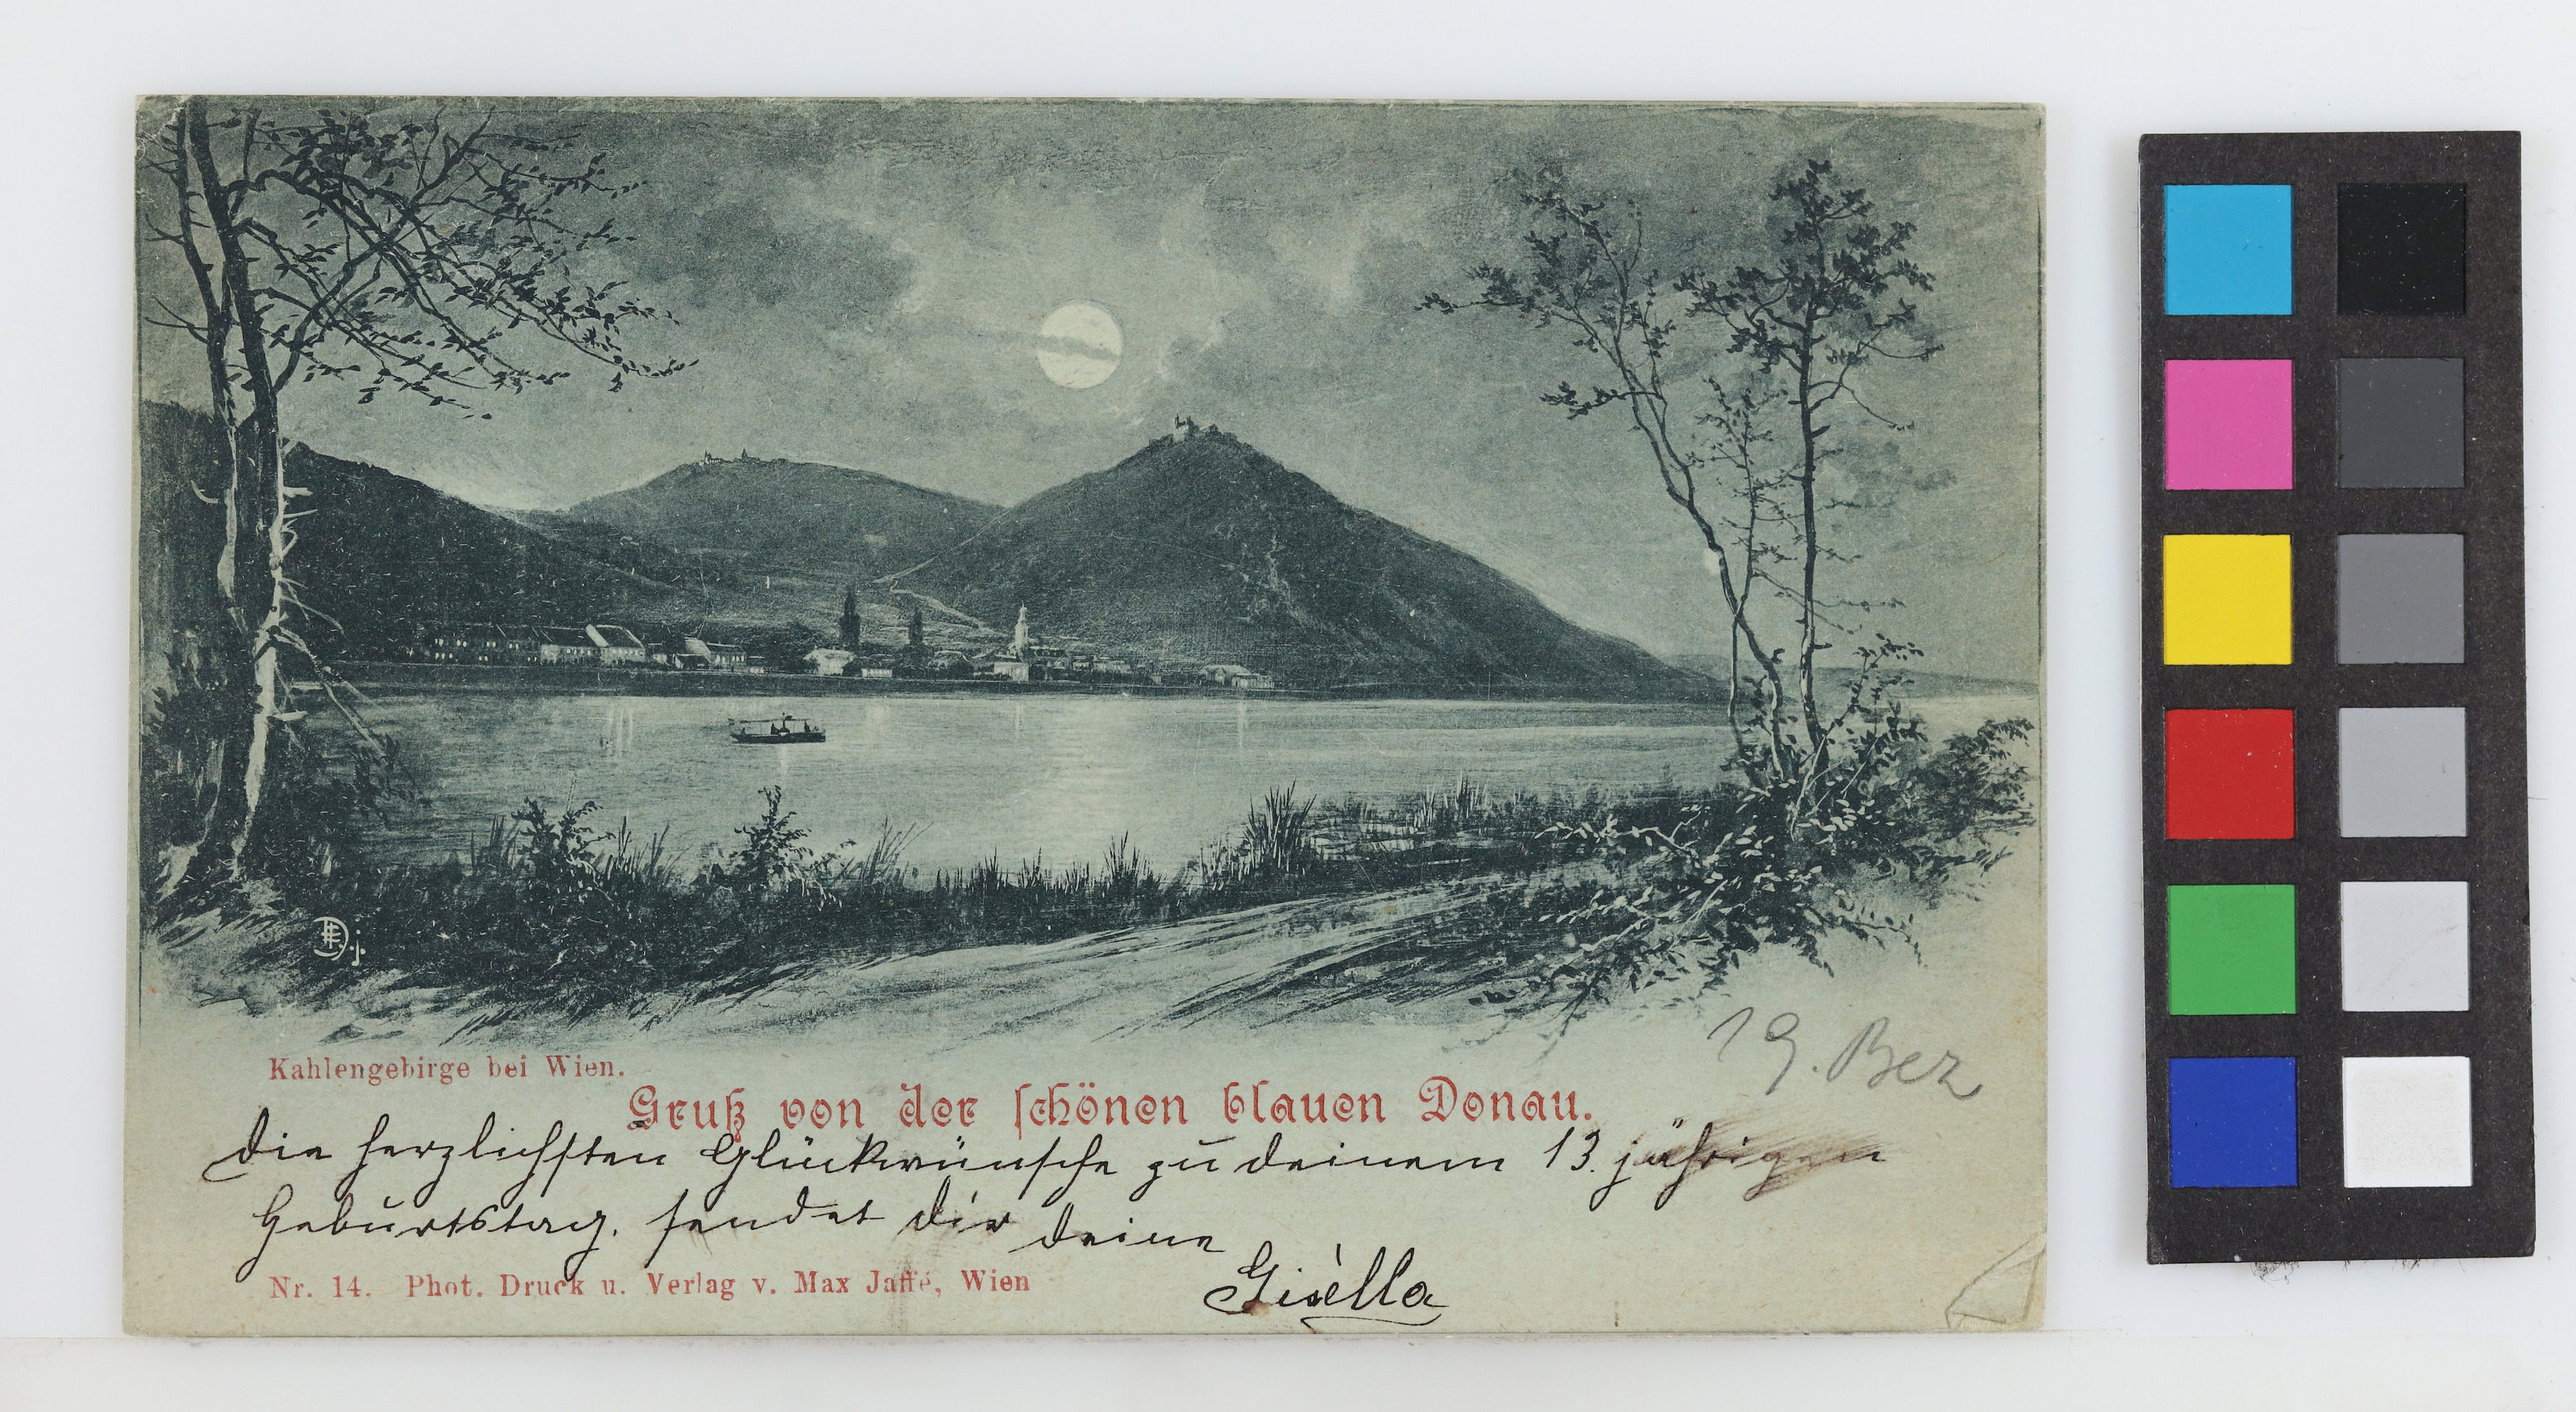 Kahlengebirge bei Wien.
19. Bez
Gruß von der schönen blauen Donau.
Die herzlichsten Glückwünsche zu deinem 13. jährigen
Geburtstag. sendet dir deine
Gisèlla
Nr. 14. Phot. Druck u. Verlag v. Max Jaffé, Wien